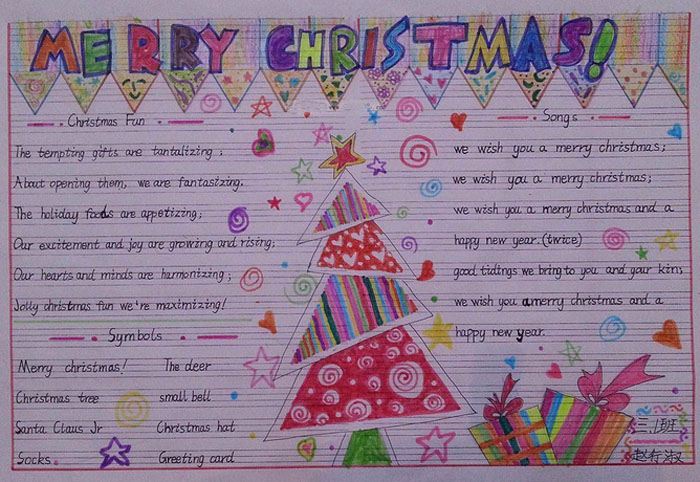 MERRY CHRISTMAS!
Christmas Fun
The tempting gifts are tantalizing;
About opening them, we are fantasizing.
The holiday foods are appetizing;
Our excitement and joy are growing and rising;
Our hearts and minds are harmonizing;
Jolly christmas fun we're maximizing!
Symbols
Merry christmas! The deer
Christmas tree small bell
Santa Claus Jr Christmas hat
Socks Greeting card
Songs
we wish you a merry christmas;
we wish you a merry christmas;
we wish you a merry christmas and a
happy new year.(twice)
good tidings we bring to you and your kin;
we wish you a merry christmas and a
happy new year.
三.1班